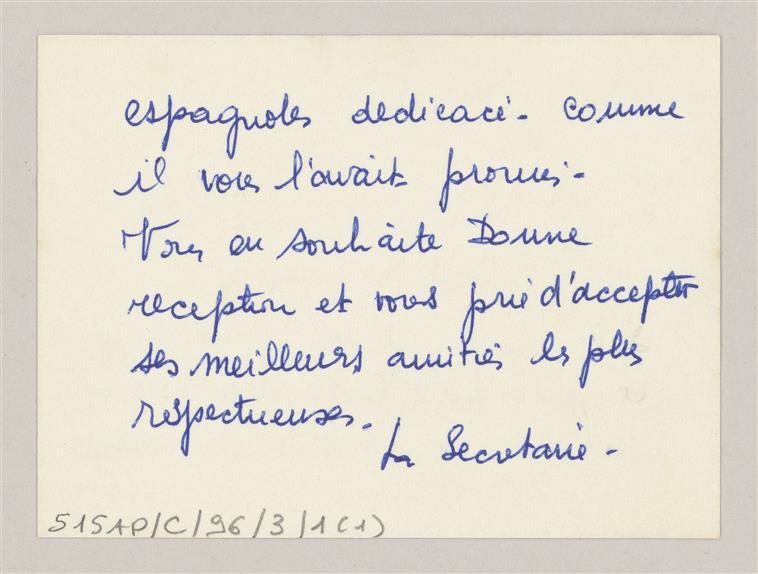 espagnoles dedicacé. Comme
il vous l'avait promis.
Vous en souhaite Bonne
reception et vous prie d'accepter
ses meilleurs amitiés les plus
respectueuses.
La Secretaire.
515AP/C/96/3/1(1)